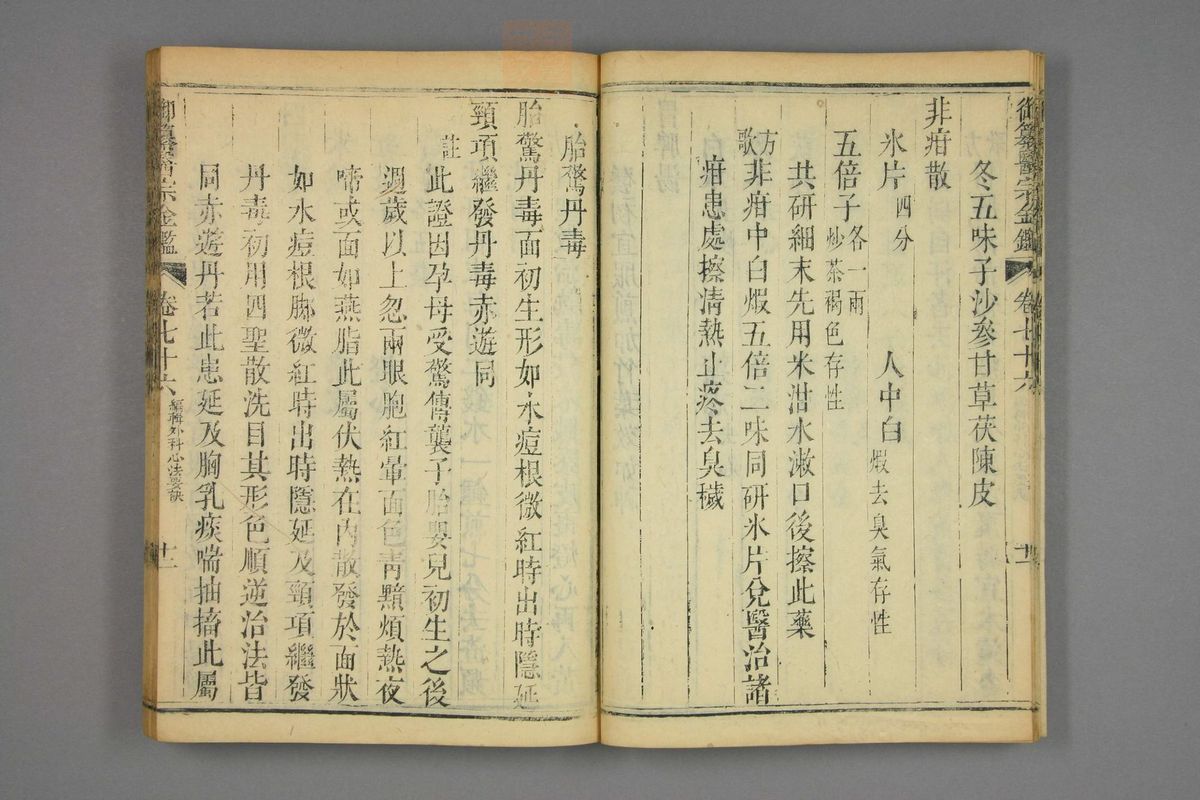 御纂醫宗金鑑 卷七十六 十一
冬五味子沙參甘草茯陳皮
非疳散
氷片四分 人中白煅去臭氣存性
五倍子炒茶褐色存性各一兩
共研細末先用米泔水漱口後擦此藥
方歌非疳中白煅五倍二味同研氷片兌醫治諸
疳患處擦清熱止疼去臭穢
胎驚丹毒
胎驚丹毒面初生形如水痘根微紅時出時隱延
頸項繼發丹毒赤遊同
註此證因孕母受驚傳襲子胎嬰兒初生之後
週歲以上忽兩眼胞紅暈面色青黯煩熱夜
啼或面如燕脂此屬伏熱在內散發於面狀
如水痘根腳微紅時出時隱延及頸項繼發
丹毒初用四聖散洗目其形色順逆治法皆
同赤遊丹若此患延及胸乳痰喘抽搐此屬
御纂醫宗金鑑 卷七十六 編輯外科心法要訣 十二